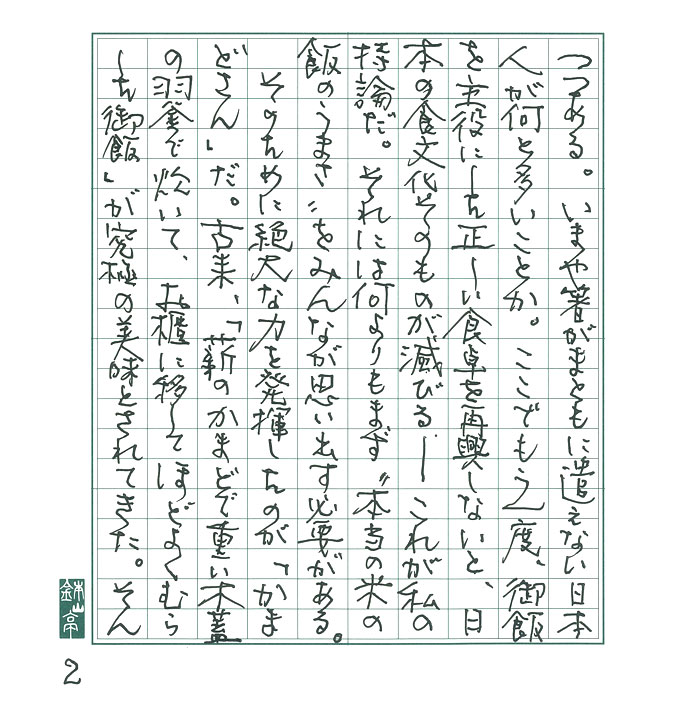 つつある。いまや箸がまともに遣えない日本
人が何と多いことか。ここでもう一度、御飯
を主役にした正しい食卓を再興しないと、日
本の食文化そのものが滅びる―これが私の
持論だ。それには何よりもまず〝本当の米の
飯のうまさ〟をみんなが思い出す必要がある。
そのために絶大な力を発揮したのが「かま
どさん」だ。古来、「薪のかまどで重い木蓋
の羽釜で炊いて、お櫃に移してほどよくむら
した御飯」が究極の美味とされてきた。そん
2